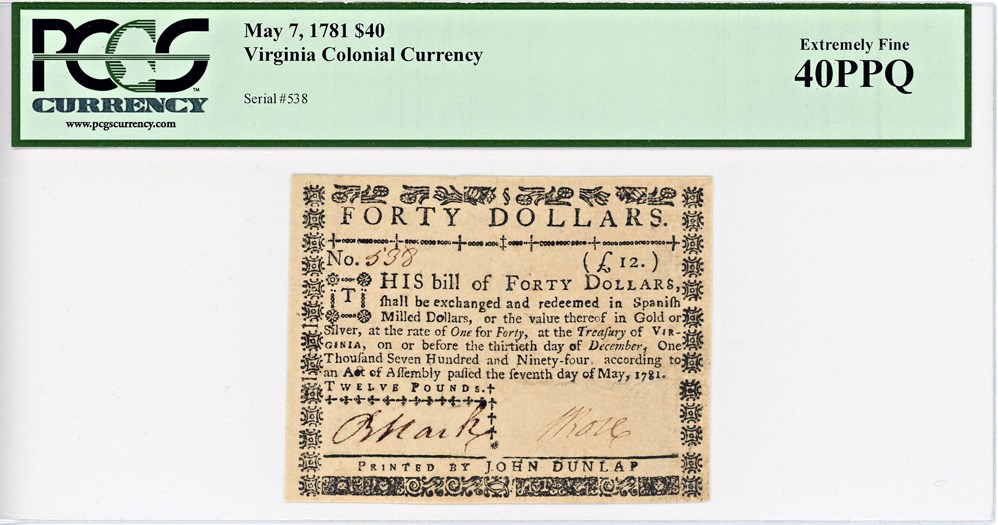 PCGS
CURRENCY
™
www.pcgscurrency.com
May 7, 1781 $40
Virginia Colonial Currency
Serial #538
Extremely Fine
40PPQ
FORTY DOLLARS.
No. 538 (£ 12.)
THIS bill of FORTY DOLLARS,
ſhall be exchanged and redeemed in Spaniſh
Milled Dollars, or the value thereof in Gold or
Silver, at the rate of One for Forty, at the Treaſury of VIR-
GINIA, on or before the thirtieth day of December, One
Thouſand Seven Hundred and Ninety-four, according to
an Act of Aſſembly paſſed the ſeventh day of May, 1781.
TWELVE POUNDS.
PRINTED BY JOHN DUNLAP